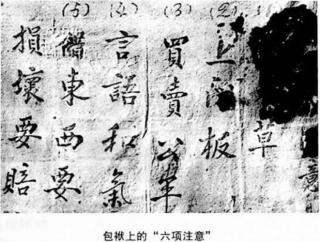 草
(2) 上门板
(3) 買賣公平
(4) 言語和氣
(5) 借東西要
損壞要賠
包袱上的“六项注意”